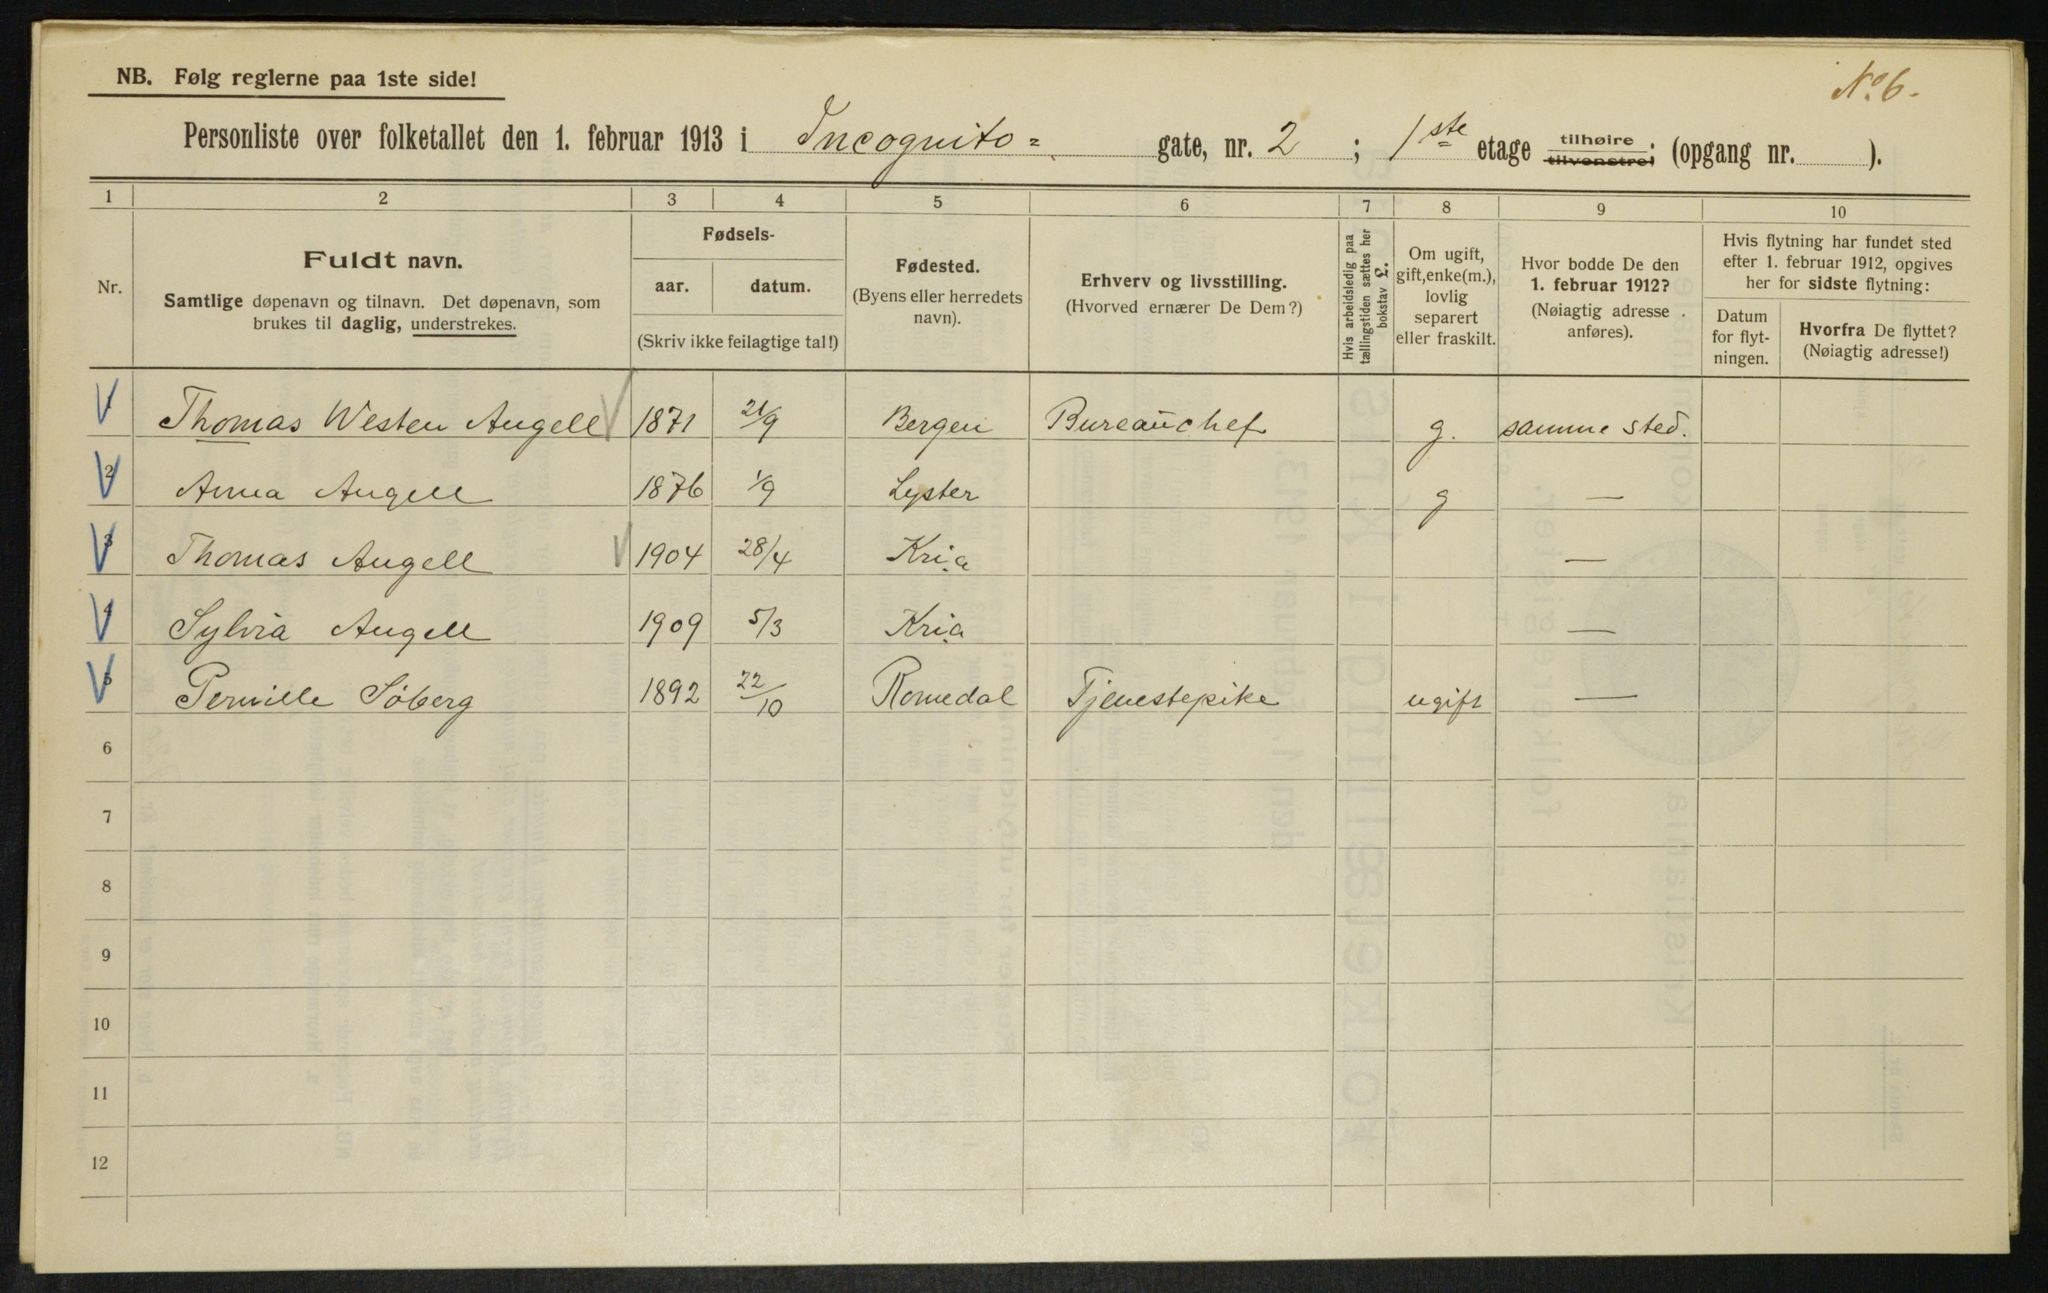 No. 6.
NB. Følg reglerne paa 1ste side!
Personliste over folketallet den 1. februar 1913 i Incognito= gate, nr. 2 ; 1ste etage tilhøire tilvenstre: (opgang nr. ).
1 2 3 4 5 6 7 8 9 10
Nr.
Fuldt navn.
Samtlige døpenavn og tilnavn. Det døpenavn, som
brukes til daglig, understrekes.
Fødsels-
aar. datum.
(Skriv ikke feilagtige tal!)
Fødested.
(Byens eller herredets
navn).
Erhverv og livsstilling.
(Hvorved ernærer De Dem?)
Hvis arbeidsledig paa
tællingstiden sættes her
bokstav £.
Om ugift,
gift, enke(m.),
lovlig
separert
eller fraskilt.
Hvor bodde De den
1. februar 1912?
(Nøiagtig adresse
anføres).
Hvis flytning har fundet sted
efter 1. februar 1912, opgives
her for sidste flytning:
Datum
for flyt-
ningen.
Hvorfra De flyttet?
(Nøiagtig adresse!)
1 Thomas Westen Angell 1871 21/9 Bergen Bureauchef g. samme sted.
2 Anna Angell 1876 1/9 Lyster g —
3 Thomas Angell 1904 28/4 Kria —
4 Sylvia Angell 1909 5/3 Kria —
5 Pernille Söberg 1892 22/10 Romedal Tjenestepike ugift —
6
7
8
9
10
11
12